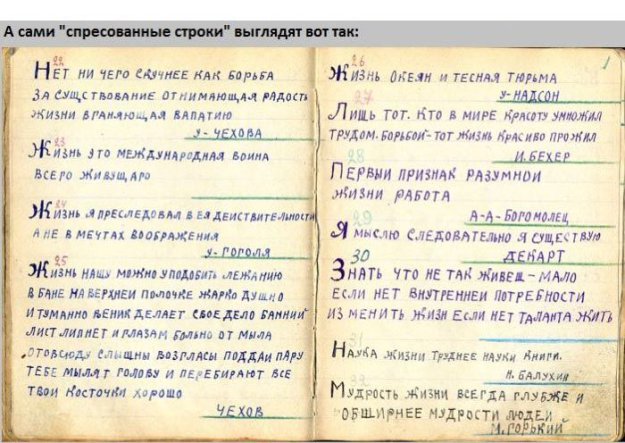 А сами "спресованные строки" выглядят вот так:
22
Нет ни чего скучнее как борьба
за существование отнимающая радость
жизни вганяющая вапатию
у- Чехова
23
Жизнь это международная воина
всеро живущаро
24
Жизнь я преследовал в ея деиствительности
а не в мечтах воображения
у- Роголя
25
Жизнь нашу можно уподобить лежанию
в бане на верхнеи полочке жарко душно
и туманно веник делает свое дело баннии
лист липнет и рлазам больно от мыла
отовсюду слышны возрласы поддаи пару
тебе мылят ролову и перебирают все
твои косточки хорошо
Чехов
1
26
Жизнь океян и тесная тюрьма
у- Надсон
27
Лишь тот. кто в мире красоту умножил
трудом. борьбои- тот жизнь красиво прожил
И. Бехер
28
Первыи признак разумнои
жизни работа
А-А- Боромолец
29
Я мыслю следовательно я существую
Декарт
30
Знать что не так живеш - мало
если нет внутреннеи потребности
изменить жизн если нет таланта жить
31
Наука жизни труднее науки книри.
Н. Балухин
Мудрость жизни всерда рлубже и
обширнее мудрости людеи
М. Рорькии